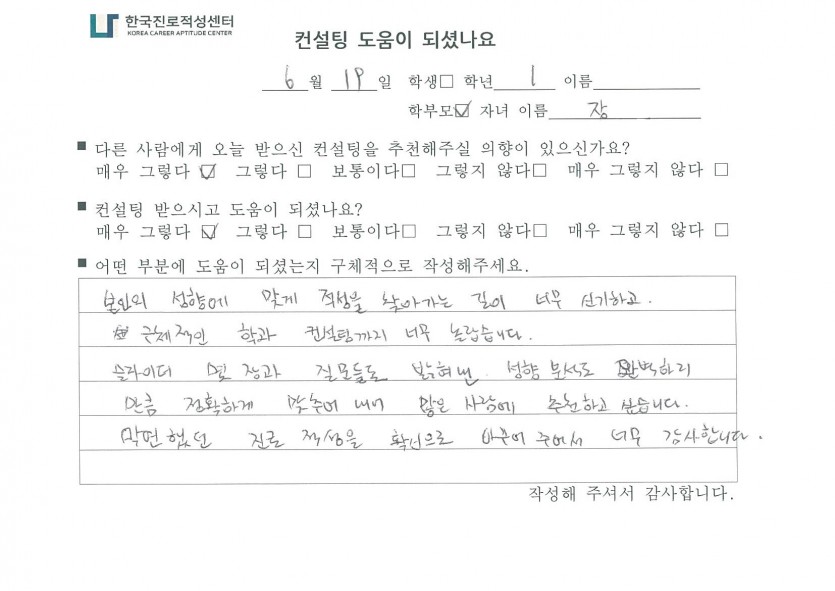 한국진로적성센터
KOREA CAREER APTITUDE CENTER
컨설팅 도움이 되셨나요
6월 19일 학생□ 학년 1 이름
학부모☑ 자녀 이름 장
■ 다른 사람에게 오늘 받으신 컨설팅을 추천해주실 의향이 있으신가요?
매우 그렇다 ☑ 그렇다 □ 보통이다□ 그렇지 않다□ 매우 그렇지 않다 □
■ 컨설팅 받으시고 도움이 되셨나요?
매우 그렇다 ☑ 그렇다 □ 보통이다□ 그렇지 않다□ 매우 그렇지 않다 □
■ 어떤 부분에 도움이 되셨는지 구체적으로 작성해주세요.
본인의 성향에 맞게 적성을 찾아가는 길이 너무 신기하고.
구체적인 학과 컨설팅까지 너무 놀랍습니다.
슬라이더 몇 장과 질문들로 밝혀낸 성향 분석도 완벽하리
만큼 정확하게 맞추어 내어 많은 사람에 추천하고 싶습니다.
막연했던 진로 적성을 확신으로 바꾸어 주어서 너무 감사합니다.
작성해 주셔서 감사합니다.